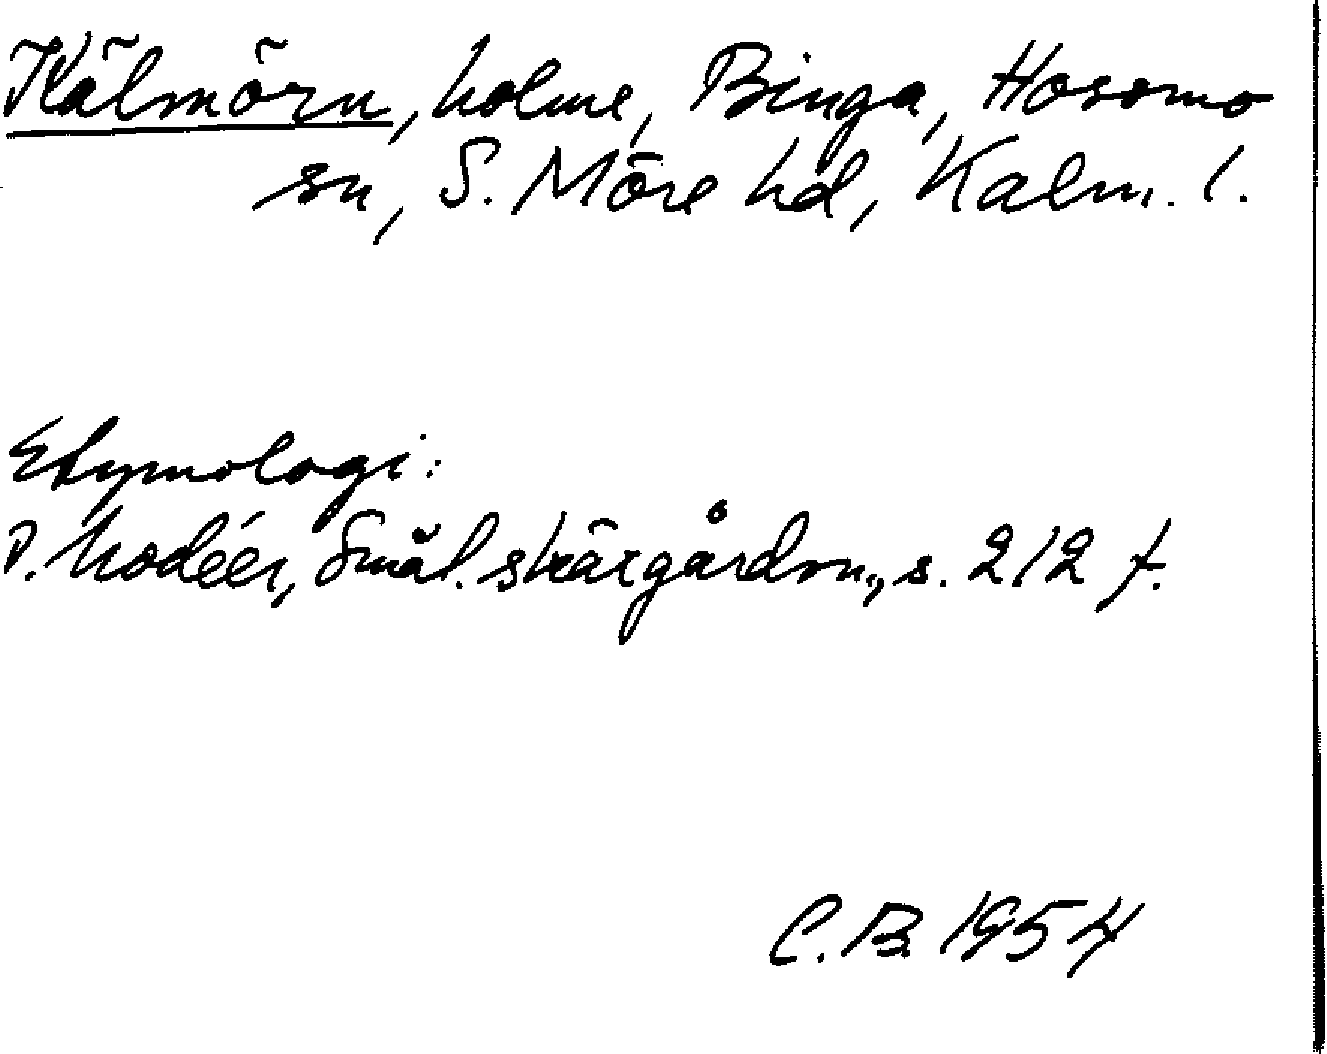 Kälmörn, holme, Binga, Hossmo
sn, S. Möre hd, Kalm. l.
Etymologi:
I. Modéer, Smål. skärgårdsn., s. 212 f.
C.B. 1954